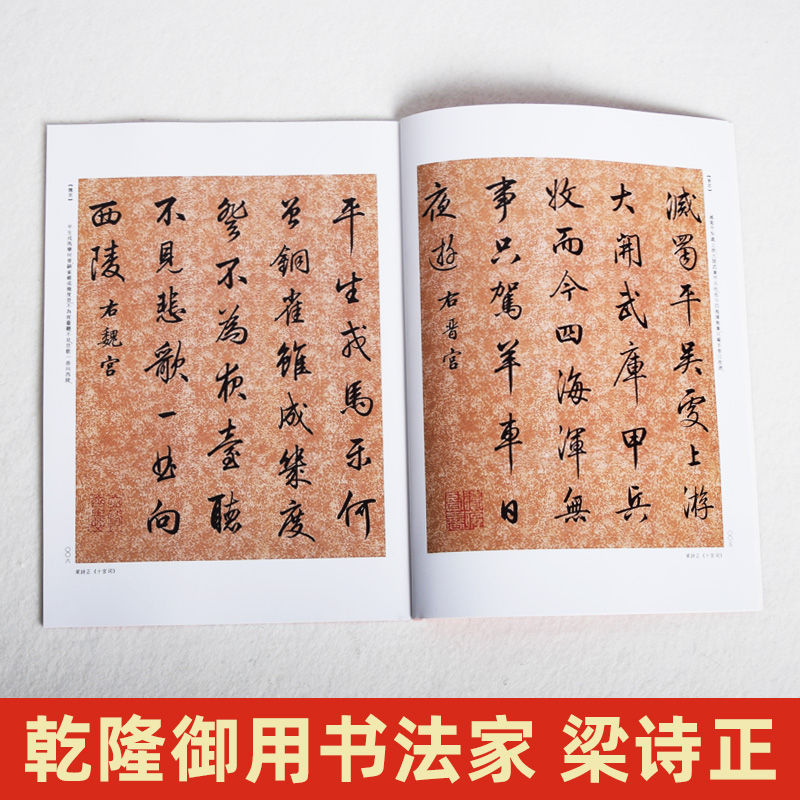 滅蜀平吳處上游
大開武庫甲兵
收而今四海渾無
事只駕羊車日
夜遊 右晉宮
梁詩正《十宮詞》
平生戎馬樂何
曾銅雀雖成幾度
登不為夜臺聽
不見悲歌一曲向
西陵 右魏宮
〇〇六
梁詩正《十宮詞》
乾隆御用书法家 梁诗正